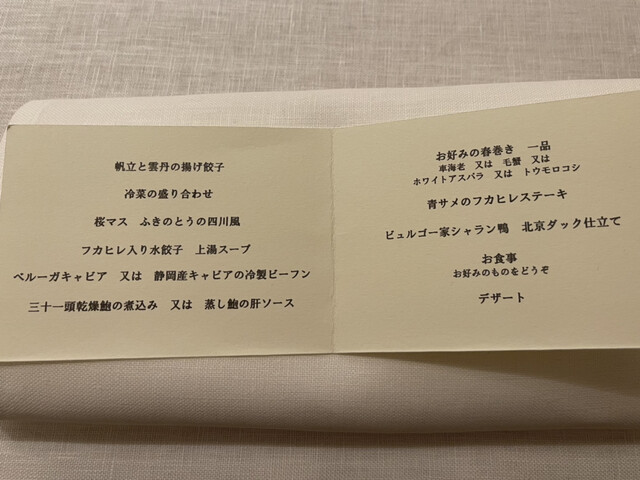 帆立と雲丹の揚げ餃子
冷菜の盛り合わせ
桜マス　ふきのとうの四川風
フカヒレ入り水餃子　上湯スープ
ベルーガキャビア　又は　静岡産キャビアの冷製ビーフン
三十一頭乾燥鮑の煮込み　又は　蒸し鮑の肝ソース
お好みの春巻き　一品
車海老　又は　毛蟹　又は
ホワイトアスパラ　又は　トウモロコシ
青サメのフカヒレステーキ
ビュルゴー家シャラン鴨　北京ダック仕立て
お食事
お好みのものをどうぞ
デザート